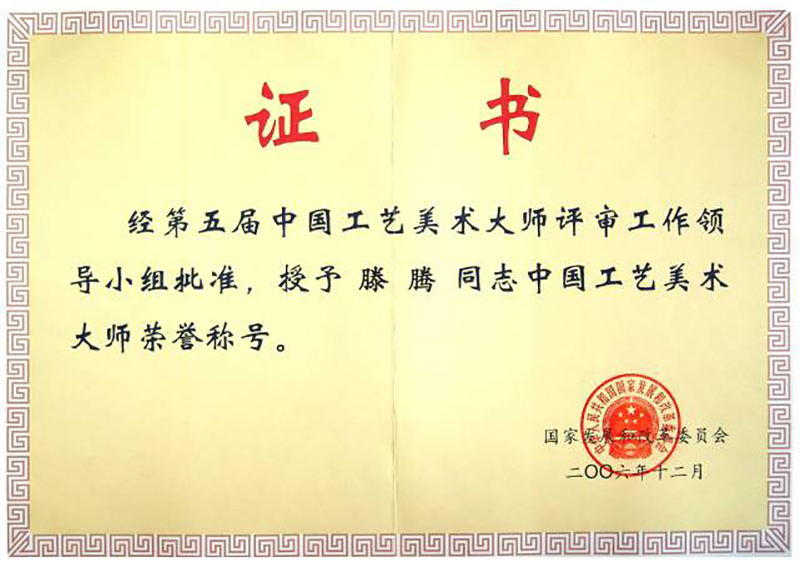 证 书
经第五届中国工艺美术大师评审工作领
导小组批准，授予 滕 腾 同志中国工艺美术
大师荣誉称号。
中华人民共和国国家发展和改革委员会
国家发展和改革委员会
二〇〇六年十二月